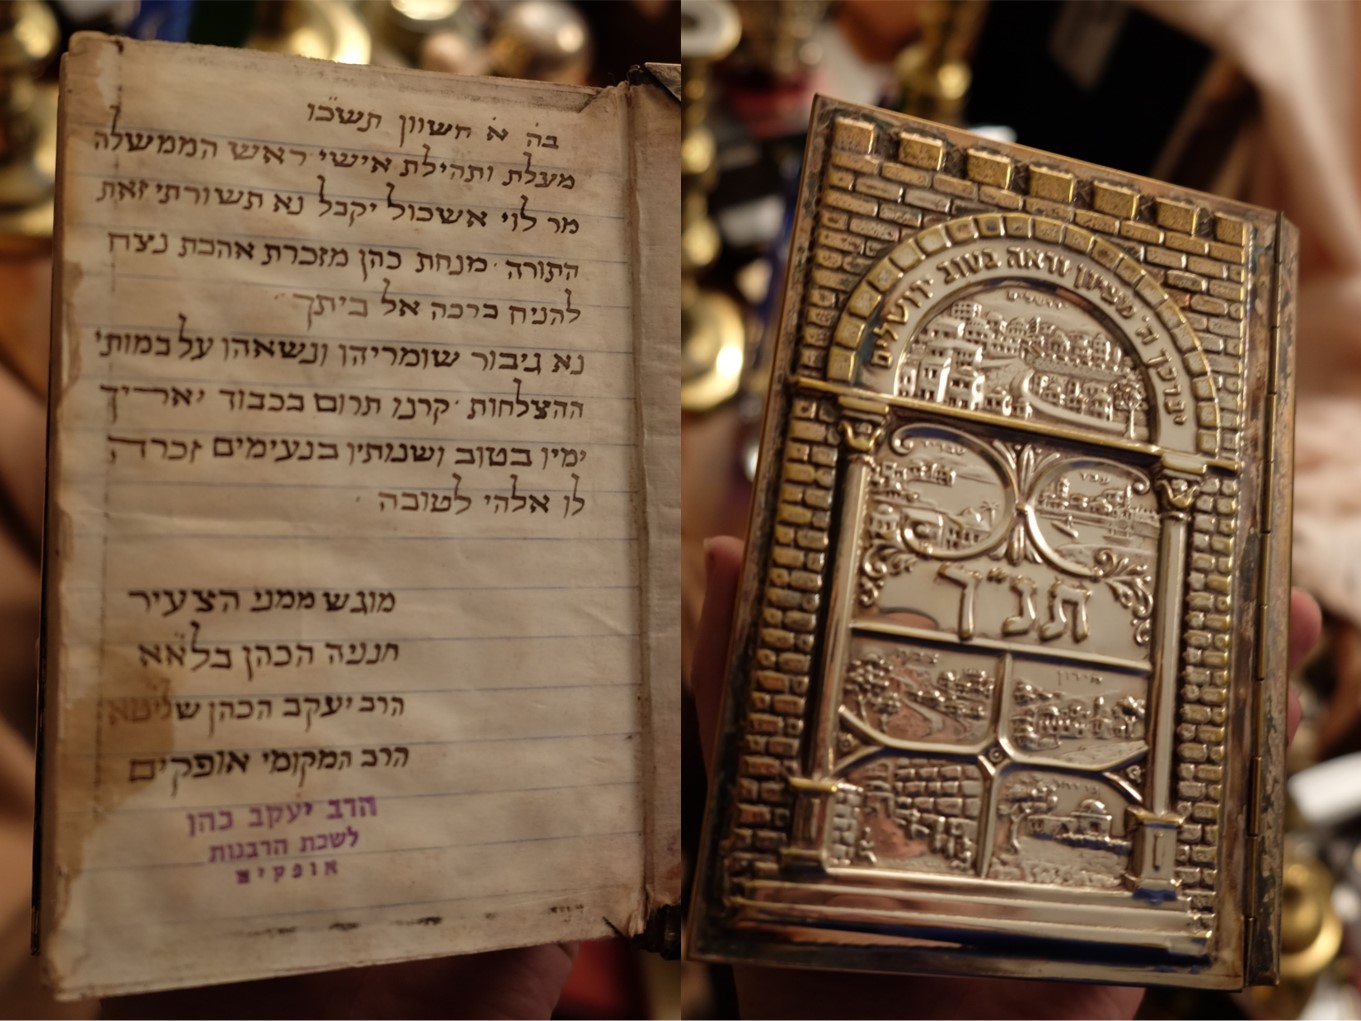 בה א חשוון תשכ"ו
מעלת ותהילת אישי ראש הממשלה
מר לוי אשכול יקבל נא תשורתי זאת
התורה מנחת כהן מזכרת אהבת נצח
להניח ברכה אל ביתך
נא גיבור שומריהן ונשאהו על במותי
ההצלחות קרנו תרום בכבוד יאריך
ימיו בטוב ושנותיו בנעימים זכרה
לו אלהי לטובה
מוגש ממני הצעיר
הכהן
הרב יעקב הכהן שליטא
הרב המקומי אופקים
הרב יעקב כהן
לשכת הרבנות
אופקים
יברכך ה' מציון וראה בטוב ירושלים
ירושלים
טבריה
עכו
תנ"ך
מירון